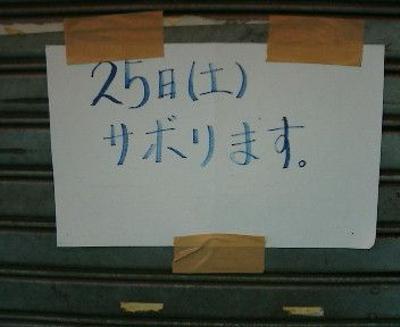 25日(土)
サボります。